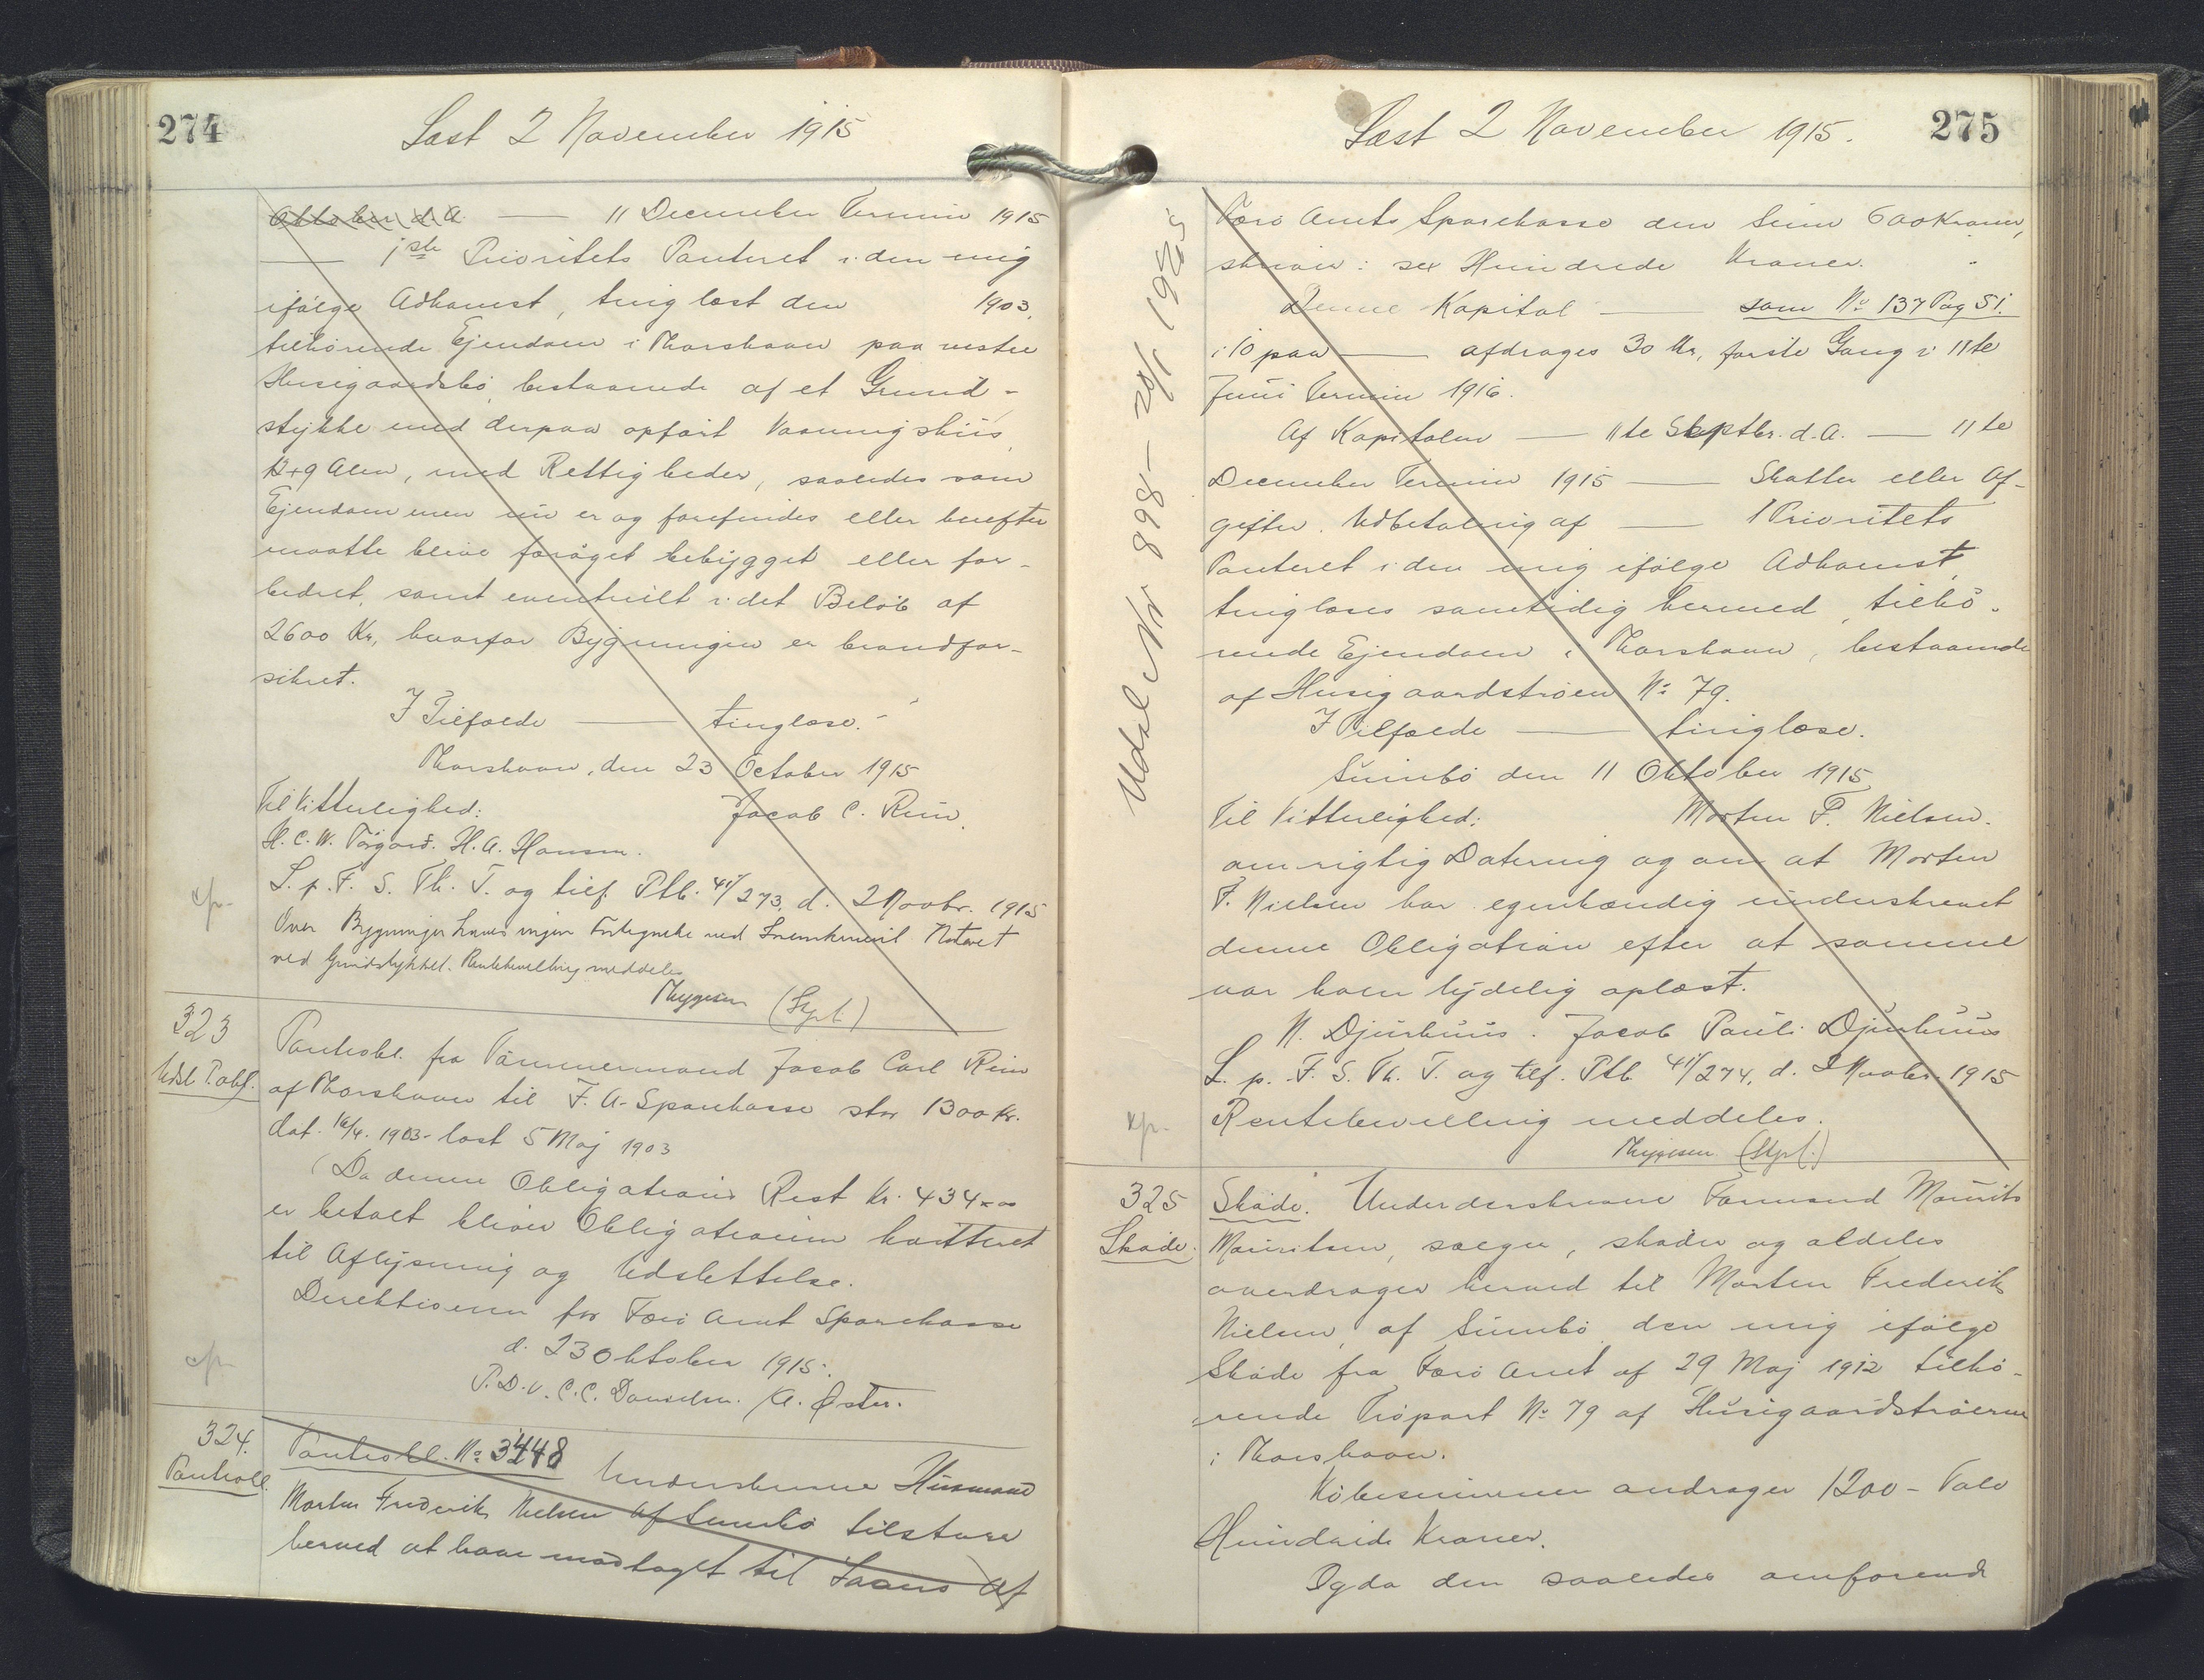 274
Læst 2 November 1915
Oktober d. A. — 11 December Termin 1915
— 1ste Prioritets Panteret i den mig
ifølge Adkomst, tinglæst den 1903,
tilhørende Ejendom i Thorshavn paa vestre
Husigaardsbø, bestaaende af et Grund-
stykke med derpaa opført Vaaningshus,
12+9 Alen, med Rettigheder, saaledes som
Ejendommen nu er og forefindes eller herefter
maatte blive forøget bebygget eller for-
bedret, samt eventuelt i det Beløb af
2600 Kr, hvorfor Bygningen er brandfor-
sikret.
I Tilfælde — tinglæse.
Thorshavn, den 23 October 1915
Til Vitterlighed: Jacob C. Rein.
H. C. W. Tórgarð. H. A. Hansen.
L. p. F. S. Th. T. og tilf. Ptb. 41/273, d. 2 Novbr. 1915
Over Bygninger haves ingen Fortegnelse ved Embedet. Noteret
ved Grundstykket. Rentebevilling meddeles
Thygesen (Kpl.)
cfr.
323
Udsl. P.obl.
Pantobl. fra Tømmermand Jacob Carl Rein
af Thorshavn til F. A. Sparekasse stor 1300 Kr.
dat. 16/4. 1903 - læst 5 Maj 1903
Da denne Obligations Rest Kr. 434 = 00
er betalt bliver Obligationen kvitteret
til Aflysning og Udslettelse.
Direktionen for Færø Amt Sparekasse
d. 23 Oktober 1915.
P. D. V. C. C. Danielsen. / A. Øster.
cfr
324.
Pantobl.
Pantobl. No 3448 Underskrevne Husmand
Morten Frederik Nielsen af Sumbø tilstaar
herved at have modtaget til Laans af
275
Læst 2 November 1915.
Udsl. Nr 898 - 20/1 1925
Færø Amts Sparekasse den Sum 600 Kroner,
skriver: sex Hundrede Kroner.
Denne Kapital — som No 137 Pag 51.
i 10 paa — afdrages 30 Kr, første Gang i 11te
Juni Termin 1916.
Af Kapitalen — 11te Septbr. d. A. — 11te
December Termin 1915 — Skatter eller Af-
gifter. Udbetaling af — 1 Prioritets
Panteret i den mig ifølge Adkomst,
tinglæses samtidig hermed, tilhø-
rende Ejendom i Thorshavn, bestaaende
af Husigaardstrøen No 79.
I Tilfælde — tinglæse.
Sumbø den 11 Oktober 1915
Til Vitterlighed: Morten F. Nielsen.
om rigtig Datering og om at Morten
F. Nielsen har egenhændig underskrevet
denne Obligation efter at samme
var ham tydelig oplæst.
N. Djurhuus. Jacob Pauli Djurhuus
L. p. F. S. Th. T. og tilf. Ptb. 41/274, d. 2 Novbr. 1915
Rentebevilling meddeles.
Thygesen (Kpl.)
cfr.
325
Skøde.
Skøde. Underskrevne Formand Mourits
Mouritsen, sælger, skøder og aldeles
overdrager herved til Morten Frederik
Nielsen, af Sumbø den mig ifølge
Skøde fra Færø Amt af 29 Maj 1912 tilhø-
rende Trøpart No 79 af Husigaardstrøerne
i Thorshavn.
Købesummen andrager 1200 - Tolv
Hundrede Kroner.
Og da den saaledes omførend